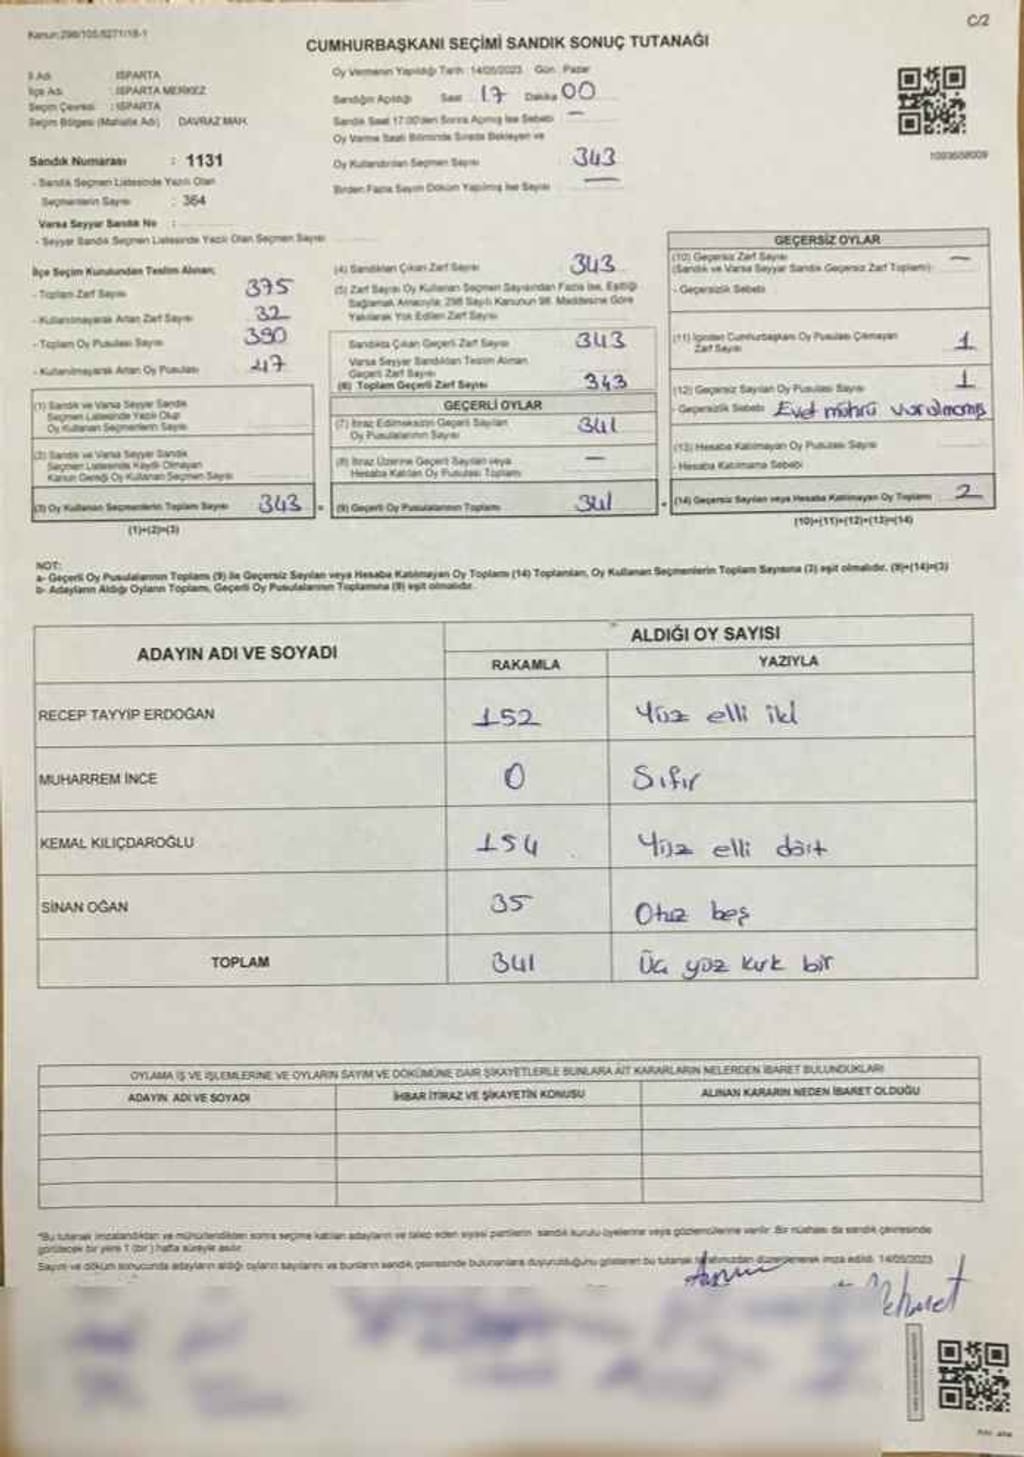 Kanun:298/105,6271/18-1
C/2
CUMHURBAŞKANI SEÇİMİ SANDIK SONUÇ TUTANAĞI
İl Adı : ISPARTA
İlçe Adı : ISPARTA MERKEZ
Seçim Çevresi : ISPARTA
Seçim Bölgesi (Mahalle Adı) DAVRAZ MAH.
Sandık Numarası : 1131
- Sandık Seçmen Listesinde Yazılı Olan
Seçmenlerin Sayısı : 364
Varsa Seyyar Sandık No :
- Seyyar Sandık Seçmen Listesinde Yazılı Olan Seçmen Sayısı
Oy Vermenin Yapıldığı Tarih : 14/05/2023 Gün : Pazar
Sandığın Açıldığı Saat 17 Dakika 00
Sandık Saat 17:00'den Sonra Açılmış İse Sebebi —
Oy Verme Saati Bitiminde Sırada Bekleyen ve
Oy Kullandırılan Seçmen Sayısı 343
Birden Fazla Sayım Döküm Yapılmış İse Sayısı —
İlçe Seçim Kurulundan Teslim Alınan;
- Toplam Zarf Sayısı 375
- Kullanılmayarak Artan Zarf Sayısı 32
- Toplam Oy Pusulası Sayısı 390
- Kullanılmayarak Artan Oy Pusulası 47
(1) Sandık ve Varsa Seyyar Sandık
Seçmen Listesinde Yazılı Olup
Oy Kullanan Seçmenlerin Sayısı
(2) Sandık ve Varsa Seyyar Sandık
Seçmen Listesinde Kayıtlı Olmayan
Kanun Gereği Oy Kullanan Seçmen Sayısı
(3) Oy Kullanan Seçmenlerin Toplam Sayısı 343
(1)+(2)=(3)
(4) Sandıktan Çıkan Zarf Sayısı 343
(5) Zarf Sayısı Oy Kullanan Seçmen Sayısından Fazla İse, Eşitliği
Sağlamak Amacıyla, 298 Sayılı Kanunun 98. Maddesine Göre
Yakılarak Yok Edilen Zarf Sayısı
Sandıkta Çıkan Geçerli Zarf Sayısı 343
Varsa Seyyar Sandıktan Teslim Alınan
Geçerli Zarf Sayısı
(6) Toplam Geçerli Zarf Sayısı 343
GEÇERLİ OYLAR
(7) İtiraz Edilmeksizin Geçerli Sayılan
Oy Pusulalarının Sayısı 341
(8) İtiraz Üzerine Geçerli Sayılan veya
Hesaba Katılan Oy Pusulası Toplamı —
(9) Geçerli Oy Pusulalarının Toplamı 341
GEÇERSİZ OYLAR
(10) Geçersiz Zarf Sayısı —
(Sandık ve Varsa Seyyar Sandık Geçersiz Zarf Toplamı)
- Geçersizlik Sebebi
(11) İçinden Cumhurbaşkanı Oy Pusulası Çıkmayan
Zarf Sayısı 1
(12) Geçersiz Sayılan Oy Pusulası Sayısı 1
- Geçersizlik Sebebi Evet mührü vurulmamış
(13) Hesaba Katılmayan Oy Pusulası Sayısı
- Hesaba Katılmama Sebebi
(14) Geçersiz Sayılan veya Hesaba Katılmayan Oy Toplamı 2
(10)+(11)+(12)+(13)=(14)
NOT:
a- Geçerli Oy Pusulalarının Toplamı (9) ile Geçersiz Sayılan veya Hesaba Katılmayan Oy Toplamı (14) Toplamları, Oy Kullanan Seçmenlerin Toplam Sayısına (3) eşit olmalıdır. (9)+(14)=(3)
b- Adayların Aldığı Oyların Toplamı, Geçerli Oy Pusulalarının Toplamına (9) eşit olmalıdır.
ADAYIN ADI VE SOYADI
ALDIĞI OY SAYISI
RAKAMLA YAZIYLA
RECEP TAYYİP ERDOĞAN 152 Yüz elli iki
MUHARREM İNCE 0 Sıfır
KEMAL KILIÇDAROĞLU 154 Yüz elli dört
SİNAN OĞAN 35 Otuz beş
TOPLAM 341 Üç yüz kırk bir
OYLAMA İŞ VE İŞLEMLERİNE VE OYLARIN SAYIM VE DÖKÜMÜNE DAİR ŞİKAYETLERLE BUNLARA AİT KARARLARIN NELERDEN İBARET BULUNDUKLARI
ADAYIN ADI VE SOYADI İHBAR İTİRAZ VE ŞİKAYETİN KONUSU ALINAN KARARIN NEDEN İBARET OLDUĞU
*Bu tutanak imzalandıktan ve mühürlendikten sonra seçime katılan adayların ve talep eden siyasi partilerin sandık kurulu üyelerine veya gözlemcilerine verilir. Bir nüshası da sandık çevresinde
görülecek bir yere 1 (bir) hafta süreyle asılır.
Sayım ve döküm sonucunda adayların aldığı oyların sayılarını ve bunların sandık çevresinde bulunanlara duyurulduğunu gösteren bu tutanak tarafımızdan düzenlenerek imza edildi. 14/05/2023